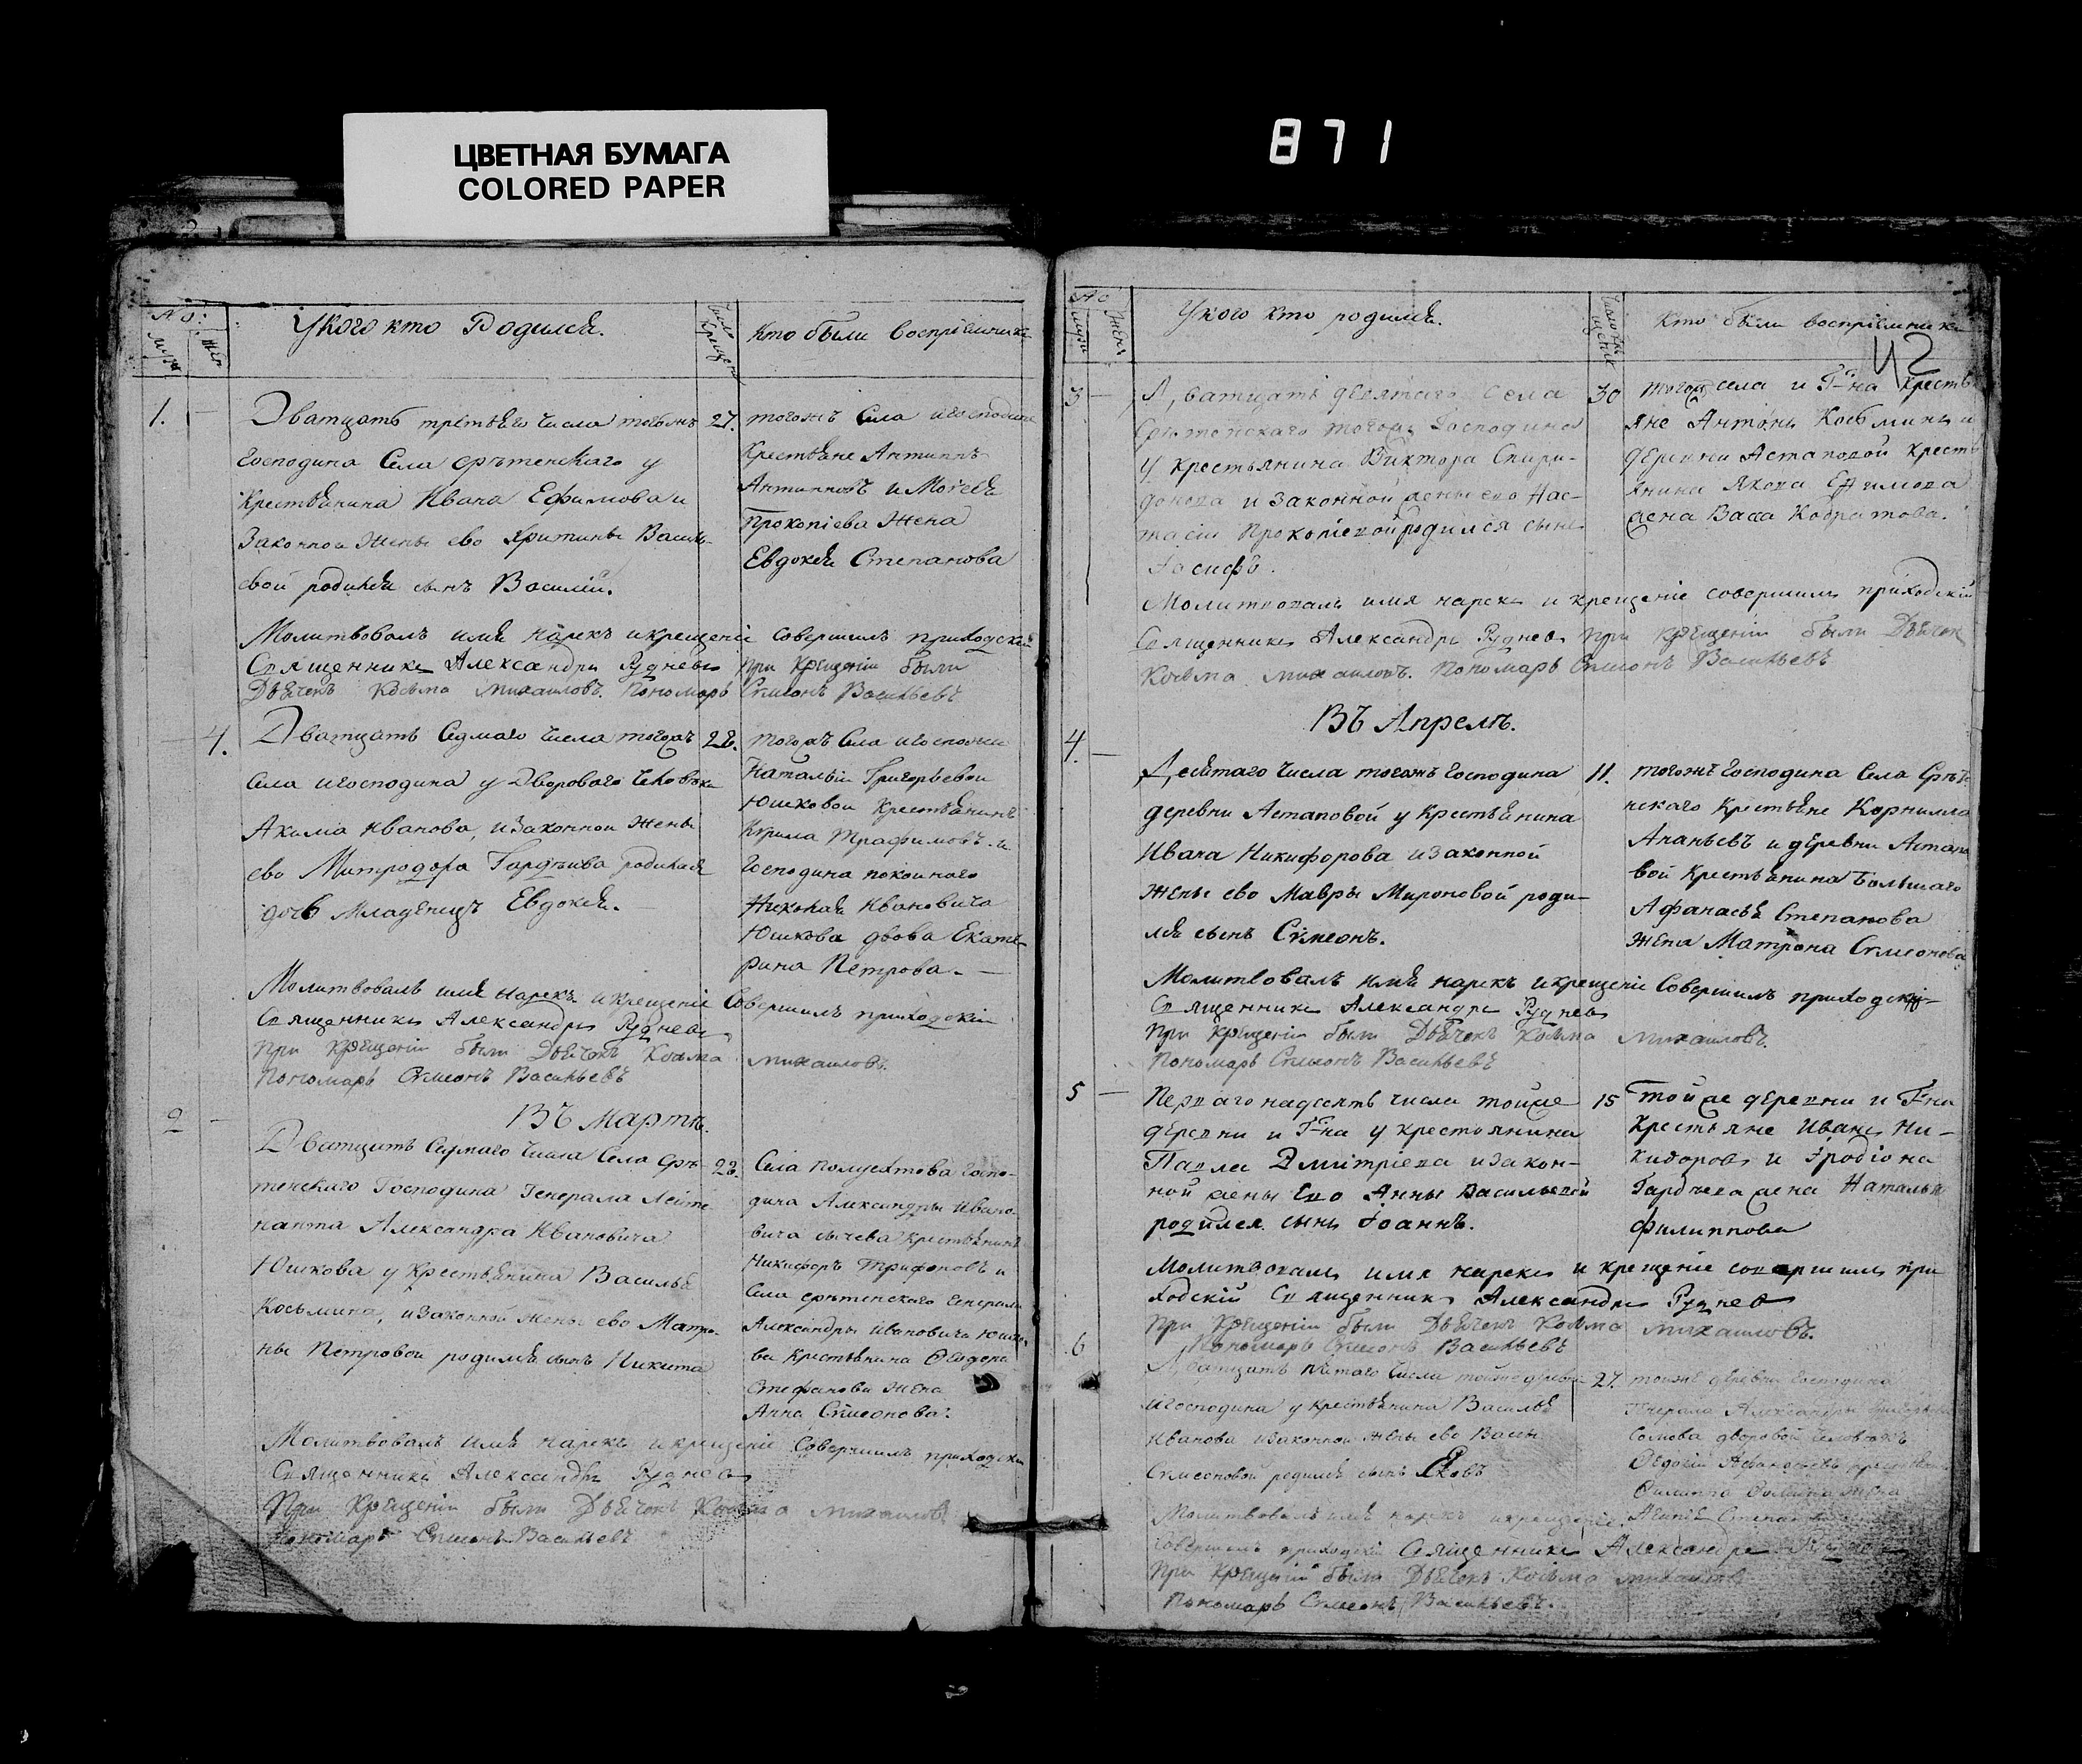 ЦВЕТНАЯ БУМАГА
COLORED PAPER
871
No:
муж
жен
У кого кто Родился.
число крещен
Кто были восприемники
1.
Дватцать третьяго числа тогожъ
господина Села срѣтенскаго у
крестьянина Ивана Ефимова и
Законной жены ево Христины Василь-
евой родился сынъ Василій.
27.
тогожъ Села и господина
Крестьяне Антиппъ
Антиповъ и Моѵсея
Прокопіева жена
Евдокея Степанова
Молитвовалъ имя нарекъ и крещеніе совершилъ приходскій
Священникъ Александръ Рудневъ при крещеніи были
Дьячекъ Косьма михаиловъ. Пономарь Сѵмеонъ Васильевъ
4.
Дватцать Седмаго числа тогожъ
села и господина у Дворового человѣка
Акима Иванова, и Законной жены
ево Митродора Гордѣива родилася
дочь младенецъ Евдокея.
28.
тогожъ Села и госпожи
Натальи Григорьевой
Юшковой Крестьянинъ
Курила Трафимовъ. и
Господина покойнаго
Николая Ивановича
Юшкова двова Екате-
рина Петрова.
Молитвовалъ имя нарекъ и крещеніе Совершилъ приходскій
Священникъ Александръ Рудневъ
при крещеніи были Дьячекъ Косьма михаиловъ.
Пономарь Сѵмеонъ Васильевъ
2
Въ Мартѣ.
Дватцать Седмаго числа Села Срѣ-
тенскаго Господина Генерала Лейте-
нанта Александра Ивановича
Юшкова у Крестьянина Василья
Косьмина, и Законной жены ево Матро-
ны Петровой родился сынъ Никита
28.
Села Полуектова Госпо-
дина Александры Ивано-
вича сычева Крестьянинъ
Никифоръ Трифоновъ и
Села срѣтенскаго Генерала
Александры Ивановича Юшко-
ва крестьянина Ѳеодора
Стефанова жена
Анна Сѵмеонова.
Молитвовалъ имя нарекъ и крещеніе Совершилъ приходскій
Священникъ Александръ Рудневъ
При крещеніи были Дьячекъ Косьма михаиловъ
Пономарь Сѵмеонъ Васильевъ
No
муж
жен
У кого кто родился.
Кто были восприемники
42
3
Дватцать девятаго Села
Срѣтенскаго тогожъ Господина
у крестьянина Виктора Спири-
донова и законной жены его Нас-
тасіи Прокопіевой родился сынъ
Іосифъ.
30
тогожъ села и Г-на кресть-
яне Антонъ Косьминъ и
деревни Астаповой кресть-
янина Якова Ефимова
жена Васса Кодратова.
Молитвовалъ имя нарекъ и крещеніе совершилъ приходскій
Священникъ Александръ Рудневъ при крещеніи были Дьячекъ
Косьма михаиловъ. Пономарь Сѵмеонъ Васильевъ
Въ Апрелѣ.
4
Десятаго числа тогожъ господина
деревни Астаповой у Крестьянина
Ивана Никифорова и Законной
жены ево Мавры Мироновой роди-
лся сынъ Сѵмеонъ.
11.
тогожъ господина Села Срѣте-
нскаго Крестьяне Корнилла
Ананьевъ и деревни Астапо-
вой Крестьянина Большаго
Афанасья Степанова
жена Матрона Сѵмеонова
Молитвовалъ имя нарекъ и крещеніе Совершилъ приходскій
Священникъ Александръ Рудневъ
при крещеніи были Дьячекъ Косьма михаиловъ.
Пономарь Сѵмеонъ Васильевъ
5
Перваго надесять числа тойже
деревни и Г-на у крестьянина
Павла Дмитріева и закон-
ной жены Его Анны Васильевой
родился сынъ Іоаннъ.
15
Тойже деревни и Г-на
Крестьяне Иванъ Ни-
кифоровъ и Іродіона
Гордѣева жена Наталья
Филиппова
Молитвовалъ имя нарекъ и крещеніе совершилъ при-
ходскій Священникъ Александръ Рудневъ
При крещеніи были Дьячекъ Косьма михаиловъ.
Пономарь Сѵмеонъ Васильевъ
6
Дватцать пятаго числа тойже деревни
и господина у крестьянина Василья
Иванова и законной жены ево Васы
Сѵмеоновой родился сынъ Яковъ
27.
тойже деревни господина
Генерала Александры
дворовой человѣкъ
жена
Степан
Молитвовалъ имя нарекъ и крещеніе
Совершилъ приходскій Священникъ Александръ Рудневъ
При крещеніи были Дьячекъ Косьма михаиловъ
Пономарь Сѵмеонъ Васильевъ.